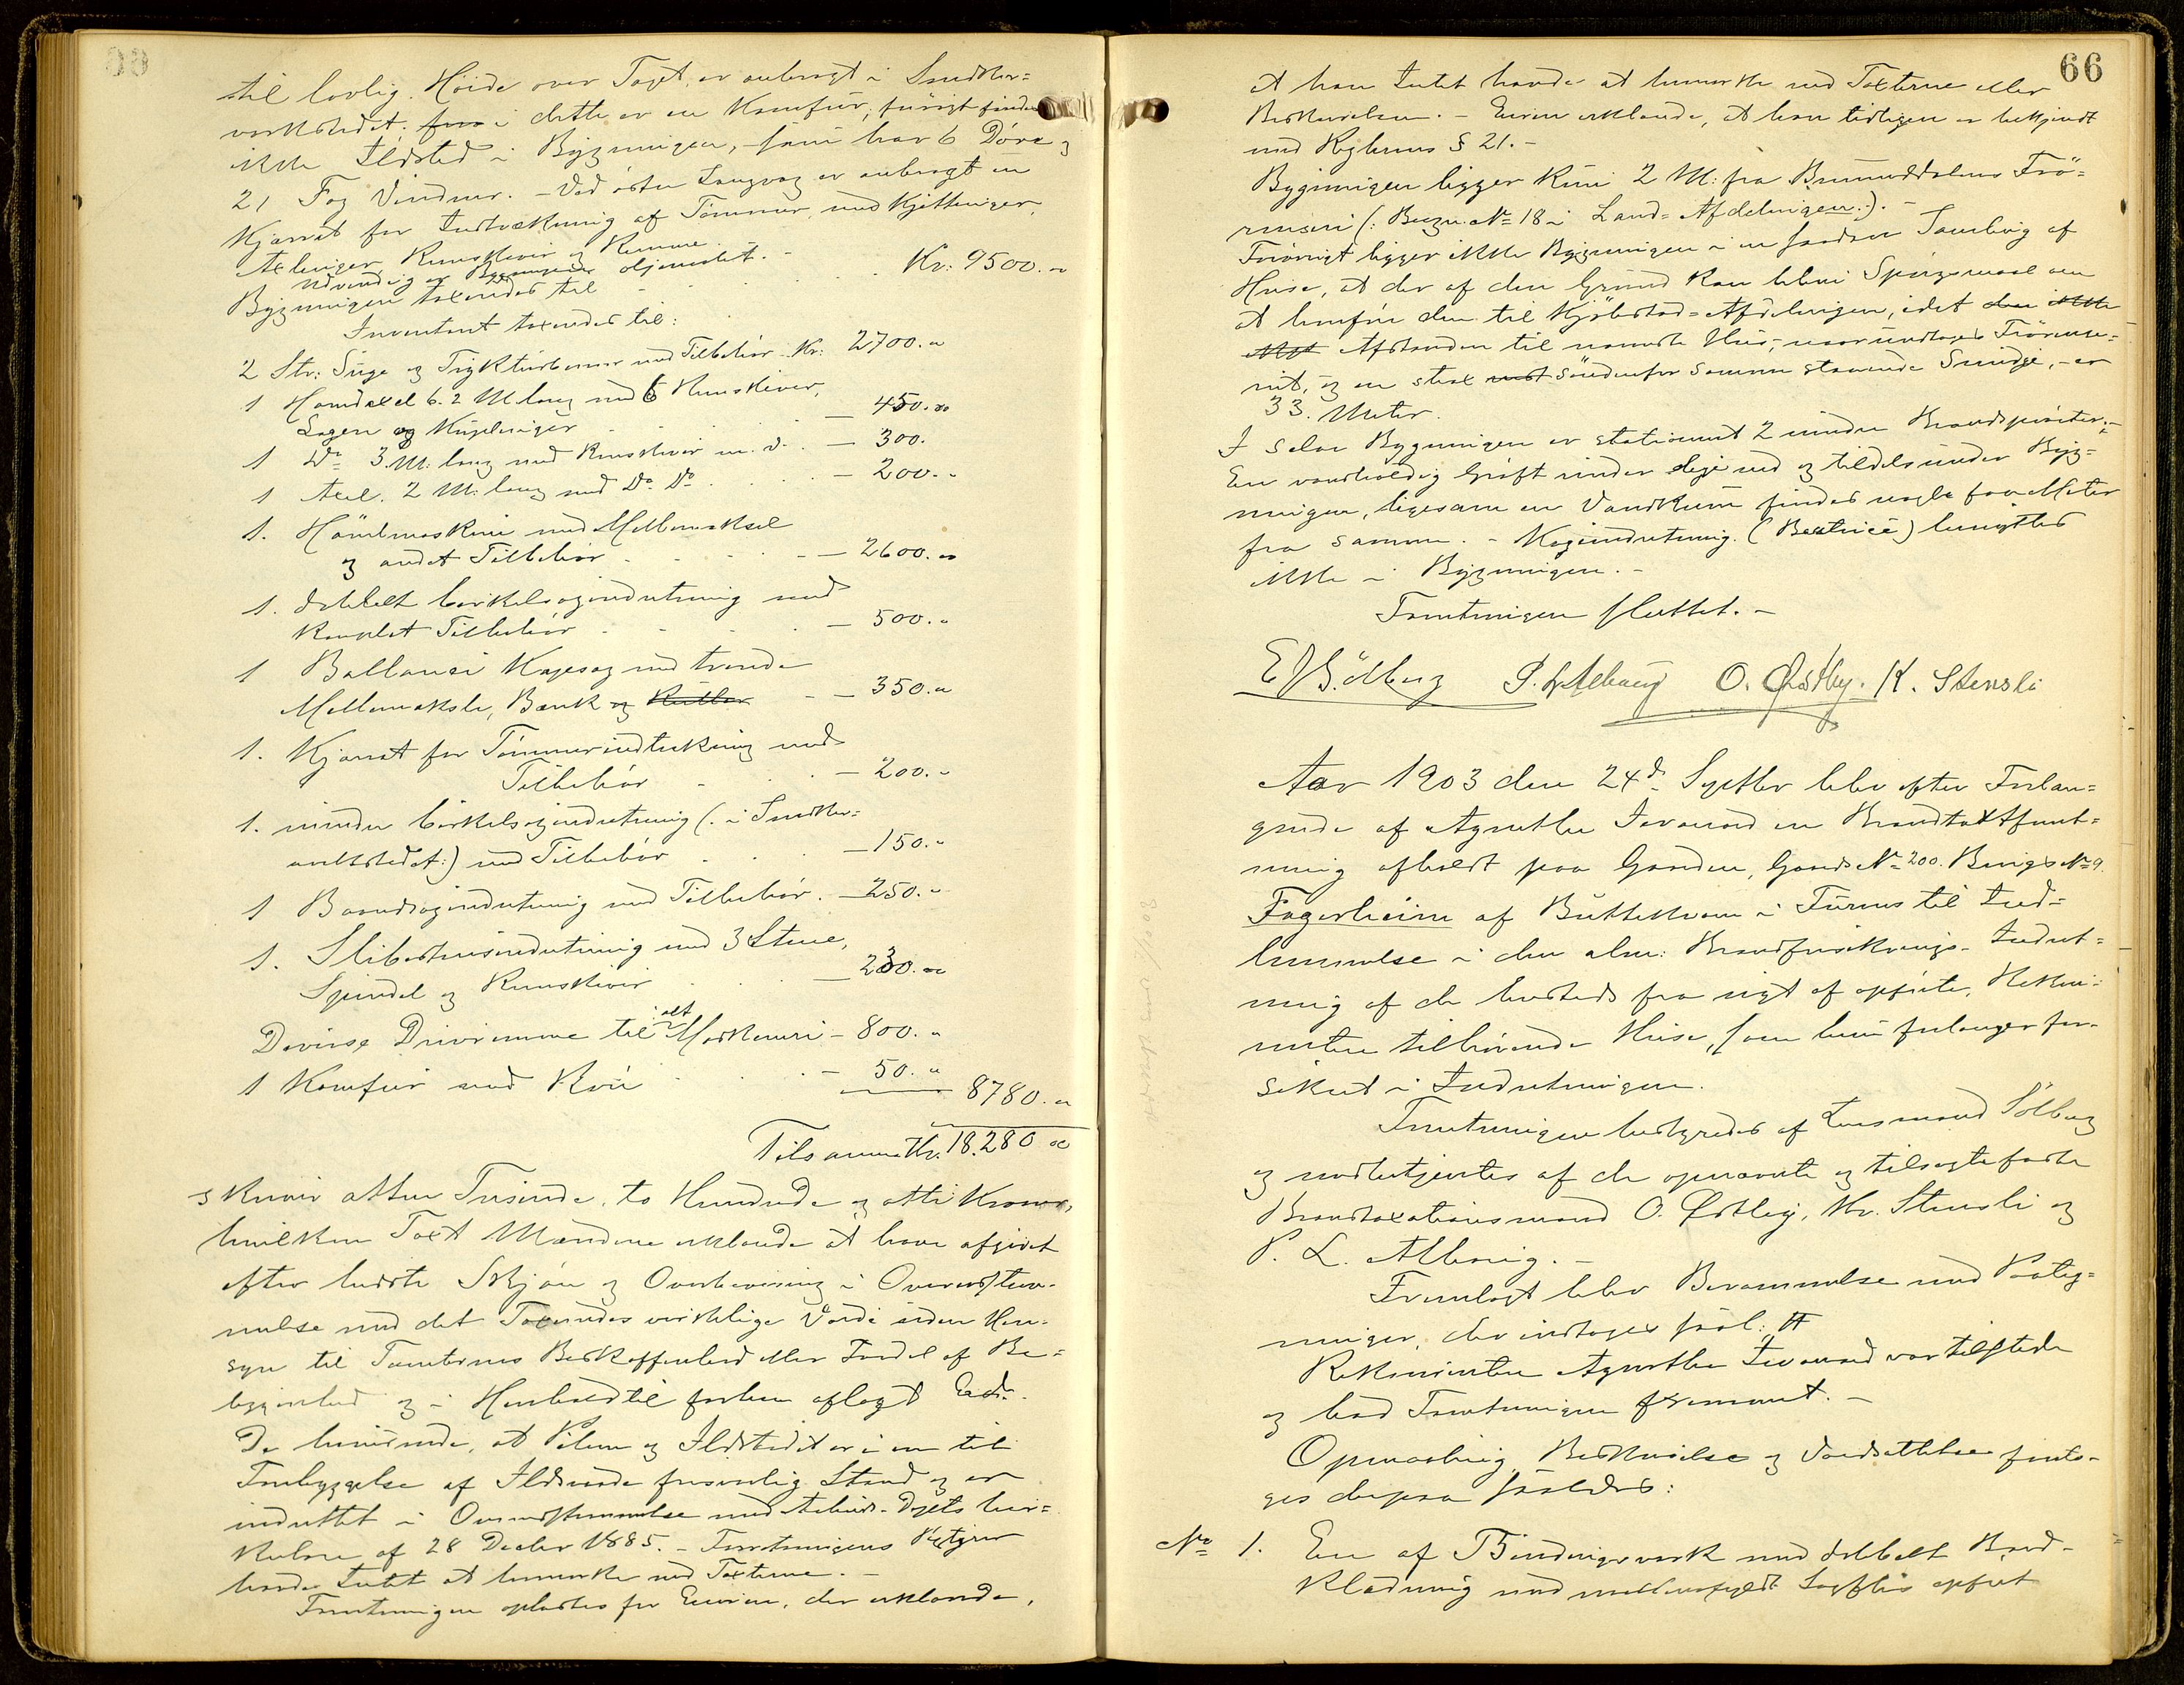 til lovlig Høide over Taget er anbragt i Snedker=
verkstedet; i dette er en Komfür, forøvrigt findes
ikke Ildsted i Bygningen, som har 6 Døre og
21 Fag Vinduer. - Ved østre Langvæg er anbragt en
Kjærrat for Indtrækning af Tømmer med Kjettinger,
Axlinger, Remskiver og Remme.
Udvendig er Bygningen oljemalet. -
Bygningen taxeredes til Kr: 9500.00
Inventaret taxeredes til:
2 Str: Suge og Trykturbiner med Tilbehør Kr: 2700.00
1 Hovedaxel 6.2 M lang med 6 Remskiver,
Lagere og Kuplinger - 450.00
1 Do 3 M: lang med Remskiver m. v. - 300.
1 Axel. 2 M: lang med Do Do - 200.-
1. Høvlemaskine med Mellemaksel
og andet Tilbehør - 2600.00
1. dobbelt Cirkelsagindretning med
komplet Tilbehør - 500.-
1 Ballance Kapsag med tvende
Mellemaksler, Bænk og Rüller - 350.00
1. Kjærrat for Tømmerindtrækning med
Tilbehør - 200.-
1. mindre Cirkelsagindretning (: i Snedker=
verkstedet:) med Tilbehør - 150.-
1 Baandsagindretning med Tilbehør. - 250.-
1. Slibestensindretning med 3 Stene,
Spindel og Remskiver - 230.00
Diverse Drivremme til alt Maskineri - 800.00
1 Komfür med Rør - 50.00
8780.00
Tilsammen Kr. 18.280 00
skriver atten Tusinde, to Hundrede og otti Kroner,
hvilken Taxt Mændene erklærede at have afgivet
efter bedste Skjøn og Overbevisning i Overensstem-
melse med det Taxeredes virkelige Værdi uden Hen-
syn til Tomternes Beskaffenhed eller Fordel af Be=
liggenhed og i Henhold til forhen aflagt Ed.
De bevidnede, at Piberne og Ildstedet er i en til
Forebyggelse af Ildsvaade forsvarlig Stand og er
indrettet i Overensstemmelse med
af 28 Decbr 1885. - Forretningens Bestyrer
havde Intet at bemerke ved Taxterne. -
Forretningen oplæstes for Eieren, der erklærede,
66
at han Intet havde at bemerke ved Taxterne eller
Beskrivelsen. - Eieren erklærede, at han tidligere er bekjendt
med Reglernes § 21. -
Bygningen ligger kun 2 M: fra Brumunddalens Frø=
renseri (: Bygn. No 18 i Land=Afdelingen:). -
Forøvrigt ligger ikke Bygningen i en saadan Samling af
Huse, at der af den Grund kan blive Spørgsmaal om
at henføre den til Kjøbstad=Afdelingen, idet den ikke
Afstanden til nærmeste Hus, naar undtages Frørense=
riet, og en strax søndenfor samme staaende Smidje, - er
33. Meter.
I selve Bygningen er stationeret 2 mindre Brandsprøiter; -
En vandholdig Grøft rinder lige ved og tildels under Byg=
ningen, ligesom en Vandkum findes nogle faa Meter
fra samme. - Kogeindretning (Beatrice) benyttes
ikke i Bygningen. -
Forretningen sluttet. -
E Sölberg P. L. Alhaug O. Østby. K. Stensli
Aar 1903 den 24de Septbr blev efter Forlan=
gende af Agnethe Iversen en Brandtaxtforret=
ning afholdt paa Gaarden, Gaards No 200. Brugs No 9.
Fagerheim af Büttekvern i Furnes til Ind=
lemmelse i den alm: Brandforsikrings-Indret=
ning af de fra nyt af opførte, Rekvi-
rentens tilhørende Huse, som hun forlanger for-
sikret i Indretningen.
Forretningen bestyredes af Lensmand Sölberg
og medbetjentes af de opnævnte og tilsagte faste
Brandtaxationsmænd O. Østby, Kr. Stensli og
P. L. Alhaug. -
Fremlagt blev Berammelse med Paateg=
ninger, der indtages saal: #
Rekvirenten Agnethe Iversen var tilstede
og bad Forretningen fremmet. -
Opmaaling, Beskrivelse og Værdsættelse foreto-
ges derpaa saaledes:
No 1. En af Bindingsverk med dobbelt Bord-
klædning med mellemfyldt Sagflis opført